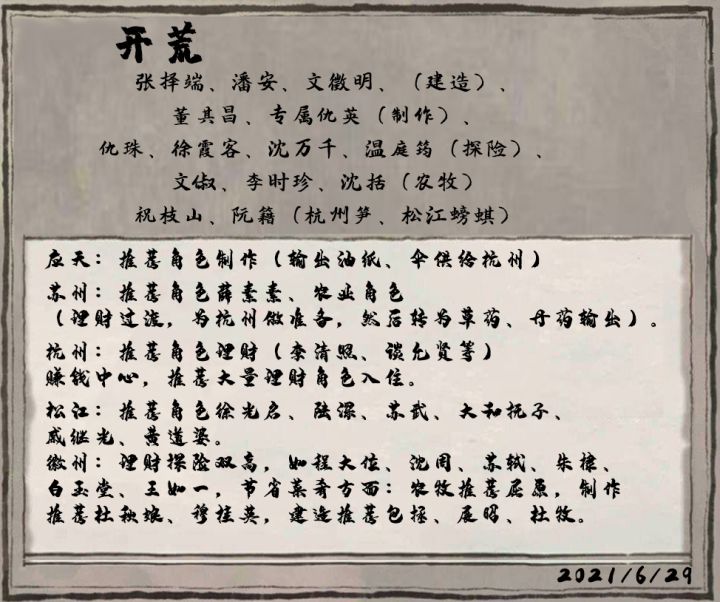 开荒
张择端、潘安、文徵明、（建造）、
董其昌、专属仇英（制作）、
仇珠、徐霞客、沈万千、温庭筠（探险）、
文俶、李时珍、沈括（农牧）
祝枝山、阮籍（杭州笋、松江螃蜞）
应天：推荐角色制作（输出油纸、伞供给杭州）
苏州：推荐角色薛素素、农业角色
（理财过渡，为杭州做准备，然后转为草药、丹药输出）。
杭州：推荐角色理财（李清照、谈允贤等）
赚钱中心，推荐大量理财角色入住。
松江：推荐角色徐光启、陆深、苏武、大和抚子、
戚继光、黄道婆。
徽州：理财探险双高，如程大位、沈周、苏轼、朱棣、
白玉堂、王如一，节省菜肴方面：农牧推荐屈原，制作
推荐杜秋娘、穆桂英，建造推荐包拯、展昭、杜牧。
2021/6/29